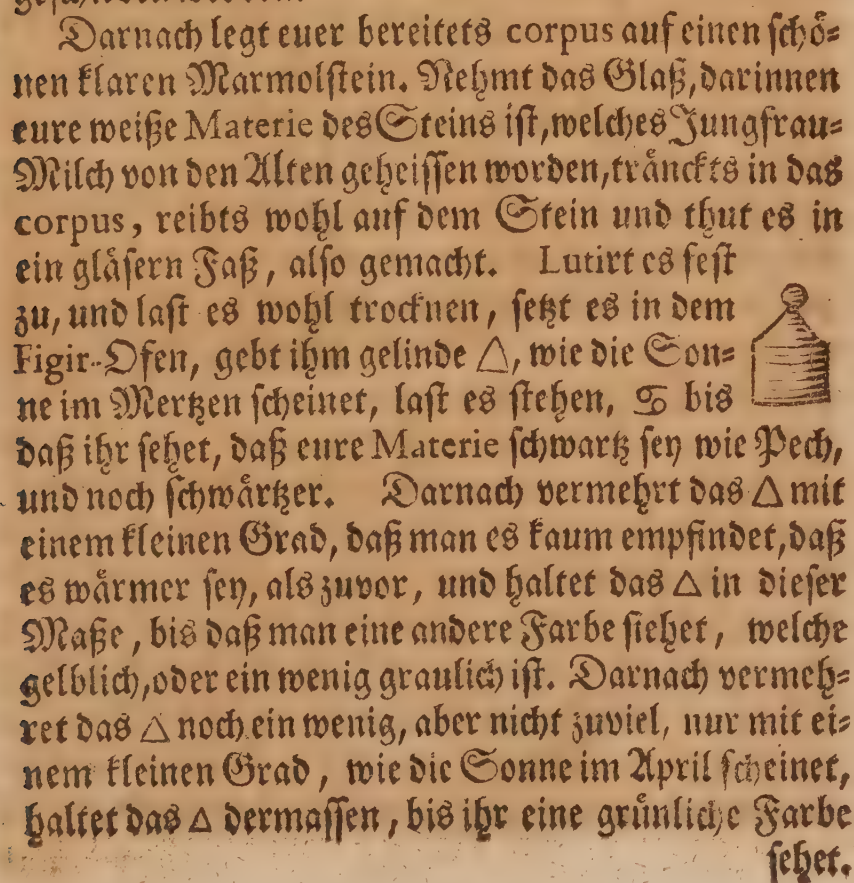 Darnach legt euer bereitets corpus auf einen schö=
nen klaren Marmolstein. Nehmt das Glaß, darinnen
eure weiße Materie des Steins ist, welches Jungfrau=
Milch von den Alten geheissen worden, tränckts in das
corpus, reibts wohl auf dem Stein und thut es in
ein gläsern Faß, also gemacht. Lutirt es fest
zu, und last es wohl trocknen, setzt es in dem
Figir-Ofen, gebt ihm gelinde △, wie die Son=
ne im Mertzen scheinet, last es stehen, ♋ bis
daß ihr sehet, daß eure Materie schwartz sey wie Pech,
und noch schwärtzer. Darnach vermehrt das △ mit
einem kleinen Grad, daß man es kaum empfindet, daß
es wärmer sey, als zuvor, und haltet das △ in dieser
Maße, bis daß man eine andere Farbe siehet, welche
gelblich, oder ein wenig graulich ist. Darnach vermeh=
ret das △ noch ein wenig, aber nicht zuviel, nur mit ei=
nem kleinen Grad, wie die Sonne im April scheinet,
haltet das △ dermassen, bis ihr eine grünliche Farbe
sehet.